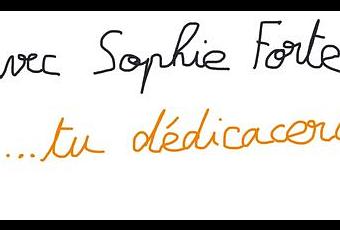 avec Sophie Forte
...tu dédicacera